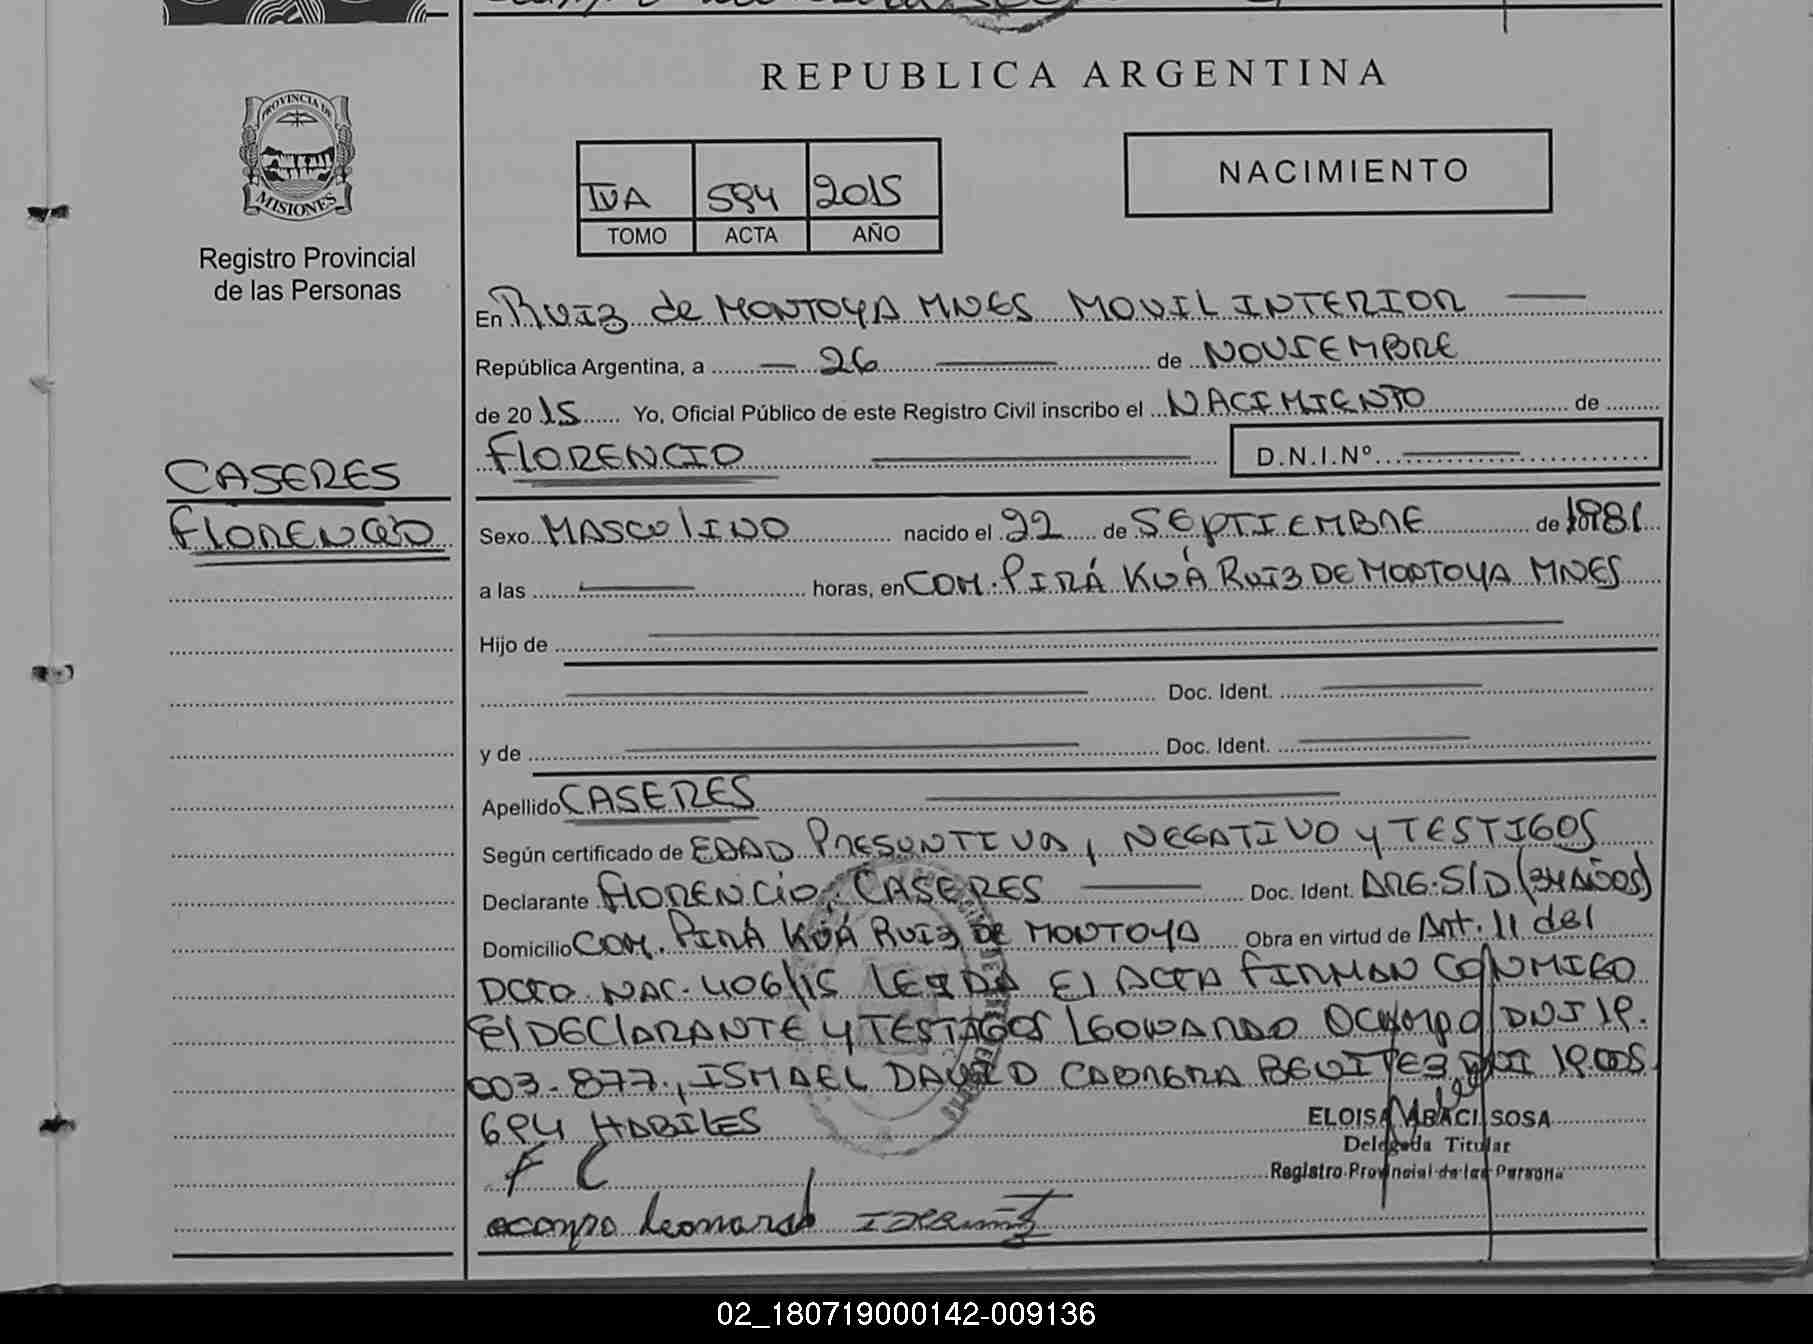 REPUBLICA ARGENTINA
PROVINCIA DE
MISIONES
Registro Provincial
de las Personas
NACIMIENTO
IVA 594 2015
TOMO ACTA AÑO
En RUIZ de MONTOYA MNES MOVIL INTERIOR
República Argentina, a 26 de NOVIEMBRE
de 2015 Yo, Oficial Público de este Registro Civil inscribo el NACIMIENTO de
FLORENCIO D.N.I.Nº
CASERES
FLORENCIO
Sexo MASCULINO nacido el 22 de SEPTIEMBRE de 1981
a las horas, en COM. PIRÁ KUÁ RUIZ DE MONTOYA MNES
Hijo de
Doc. Ident.
y de Doc. Ident.
Apellido CASERES
Según certificado de EDAD PRESUNTIVA, NEGATIVO y TESTIGOS
Declarante FLORENCIO CASERES Doc. Ident. ARG. S/D (34 AÑOS)
Domicilio COM. PIRÁ KUÁ RUIZ DE MONTOYA Obra en virtud de Art. 11 del
DCTO. NAC. 406/15 LEIDA El ACTA FIRMAN CONMIGO
El DECLARANTE y TESTIGOS LEONARDO OCAMPO DNI 19.
003.877., ISMAEL DAVID CABRERA BENITEZ DNI 19.005.
694 HABILES
ELOISA SOSA
Delegada Titular
Registro Provincial de las Persona
F C
ocampo Leonardo
02_180719000142-009136